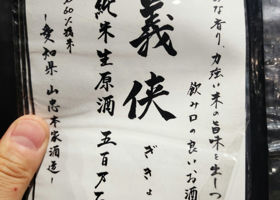 な香り、力強い米の旨味を出しつ
飲み口の良いお酒
義侠
ぎきょ
純米生原酒 五百万
60%精米
ー愛知県 山忠本家酒造ー